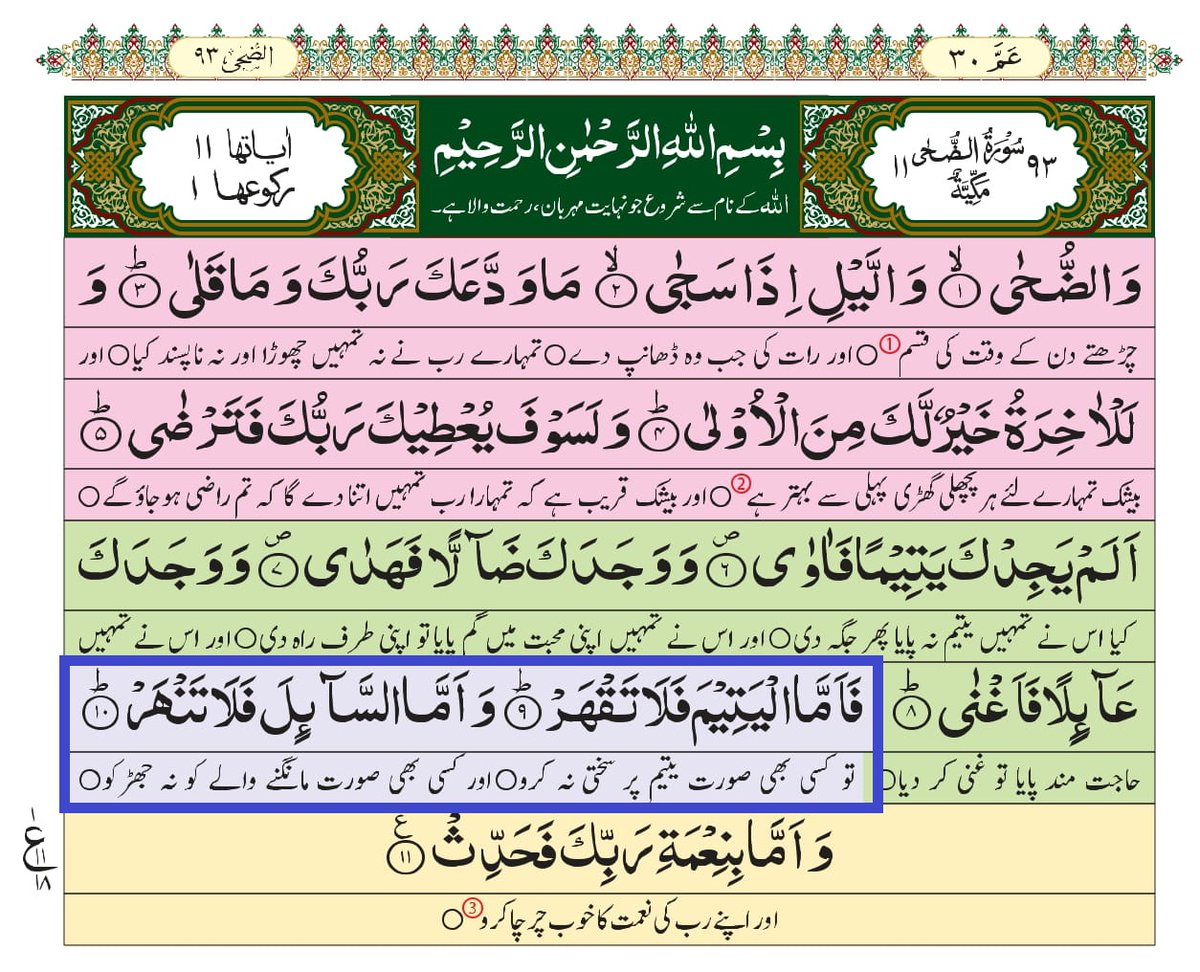 عَمَّ ٣٠
الضُّحٰى ٩٣
٩٣ سُوْرَةُ الضُّحٰى ١١
مَكِّيَّةٌ
بِسْمِ اللّٰهِ الرَّحْمٰنِ الرَّحِيْمِ
اللہ کے نام سے شروع جو نہایت مہربان، رحمت والا ہے۔
اٰياتها ١١
ركوعها ١
وَالضُّحٰى ۙ﴿١﴾ وَالَّيْلِ اِذَا سَجٰى ۙ﴿٢﴾ مَا وَدَّعَكَ رَبُّكَ وَمَا قَلٰى ؕ﴿٣﴾ وَ
چڑھتے دن کے وقت کی قسم ① ○ اور رات کی جب وہ ڈھانپ دے ○ تمہارے رب نے نہ تمہیں چھوڑا اور نہ ناپسند کیا ○ اور
لَلْاٰخِرَةُ خَيْرٌ لَّكَ مِنَ الْاُوْلٰى ؕ﴿٤﴾ وَلَسَوْفَ يُعْطِيْكَ رَبُّكَ فَتَرْضٰى ؕ﴿٥﴾
بیشک تمہارے لئے ہر پچھلی گھڑی پہلی سے بہتر ہے ② ○ اور بیشک قریب ہے کہ تمہارا رب تمہیں اتنا دے گا کہ تم راضی ہو جاؤ گے ○
اَلَمْ يَجِدْكَ يَتِيْمًا فَاٰوٰى ۪﴿٦﴾ وَوَجَدَكَ ضَآلًّا فَهَدٰى ۪﴿٧﴾ وَوَجَدَكَ
کیا اس نے تمہیں یتیم نہ پایا پھر جگہ دی ○ اور اس نے تمہیں اپنی محبت میں گم پایا تو اپنی طرف راہ دی ○ اور اس نے تمہیں
عَآئِلًا فَاَغْنٰى ؕ﴿٨﴾ فَاَمَّا الْيَتِيْمَ فَلَا تَقْهَرْ ؕ﴿٩﴾ وَاَمَّا السَّآئِلَ فَلَا تَنْهَرْ ؕ﴿١٠﴾
حاجت مند پایا تو غنی کر دیا ○ تو کسی بھی صورت یتیم پر سختی نہ کرو ○ اور کسی بھی صورت مانگنے والے کو نہ جھڑکو ○
وَاَمَّا بِنِعْمَةِ رَبِّكَ فَحَدِّثْ ﴿١١﴾ ع
١
ع
١١
١٨
اور اپنے رب کی نعمت کا خوب چرچا کرو ③ ○